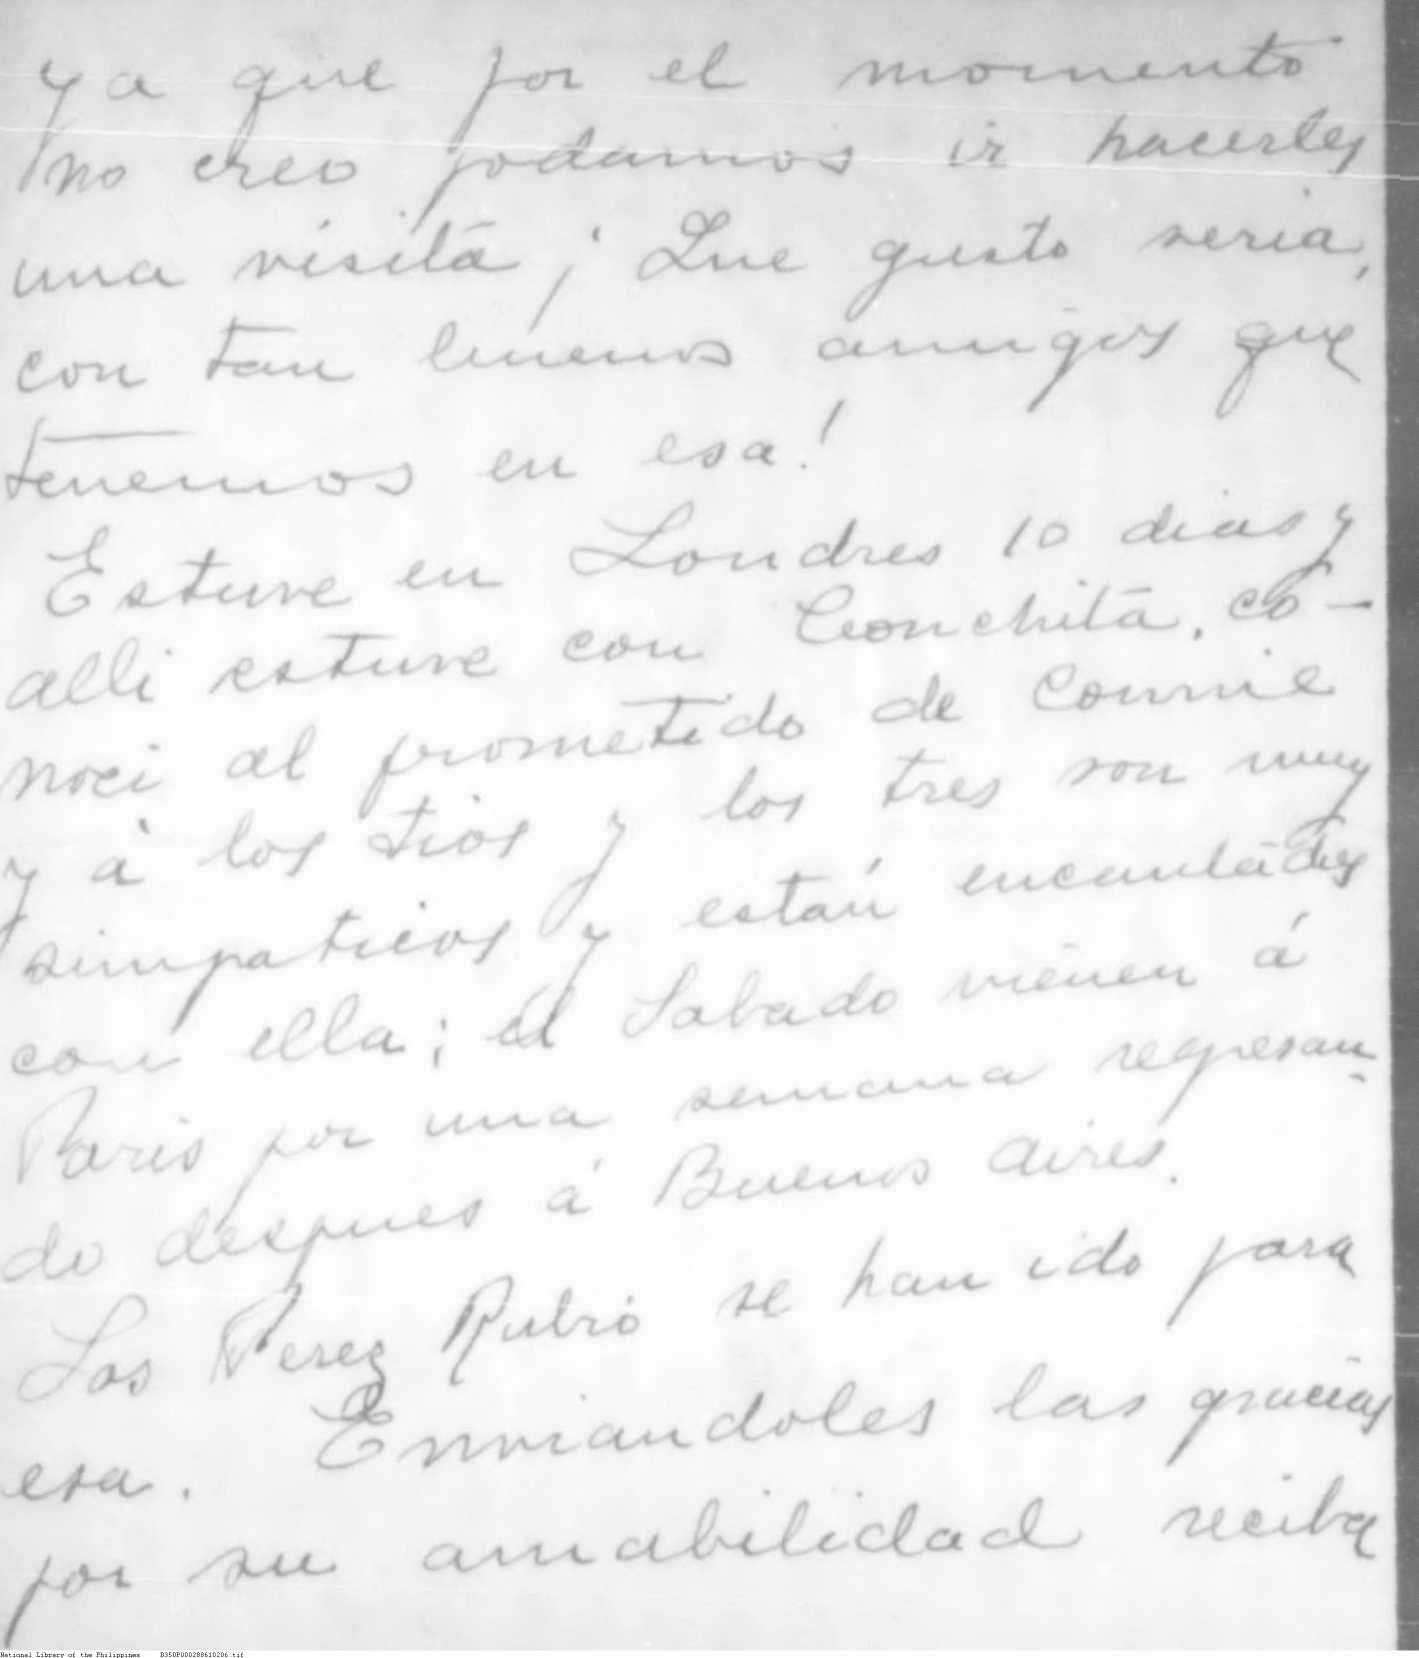 ya que por el momento
no creo podamos ir hacerles
una visita ¡Que gusto seria,
con tan buenos amigos que
tenemos en esa!
Estuve en Londres 10 dias y
alli estuve con Conchita, co-
noci al prometido de Connie
y á los tios y los tres son muy
simpaticos y están encantados
con ella; el Sabado vienen á
Paris por una semana regresan-
do despues á Buenos Aires.
Los Perez Rubio se han ido para
esa. Enviandoles las gracias
por su amabilidad reciba
National Library of the Philippines D350P000288610206.tif